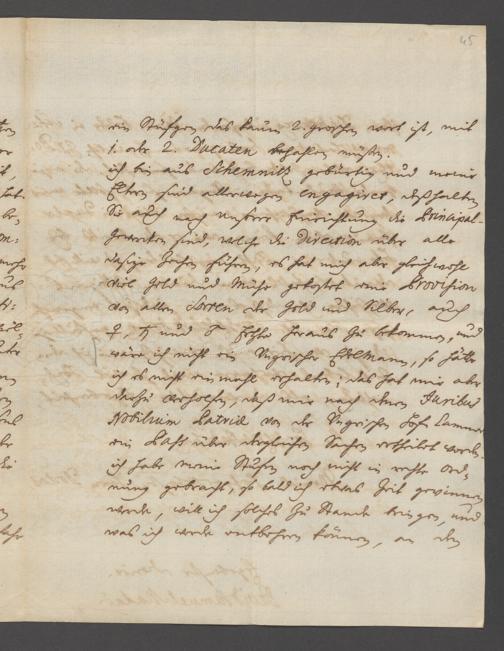 45
ein Stüfgen das kaum 2. groschen wert ist, mit
1. oder 2. Ducaten bezahlen müßen.
ich bin aus Schemnitz gebürtig und meine
Eltern sind allerwegen engagiret, deßhalben
Sie auch nach unserer Einrichtung die Principal-
Gewerken sind, welche die Direction über alle
dasige Zechen führen, es hat mich aber gleichwohl
viel Geld und Mühe gekostet eine Provision
von allen Sorten der Gold und Silber, auch
♀, ♄ und ♂ Erzte heraus zu bekommen, und
wäre ich nicht ein Ungrischer Edelmann, so hätte
ich es nicht einmahl erhalten; das hat mir aber
dazu verholfen, daß mir nach denen Juribus
Nobilium Patriæ von der Ungrischen Hof Cammer
ein Paßs über dergleichen Sachen ertheilet worden.
ich habe meine Stüfen noch nicht in rechte Ord-
nung gebracht, so bald ich etwas Zeit gewinnen
werde, will ich solches zu Stande bringen, und
was ich werde entbehren können, an den